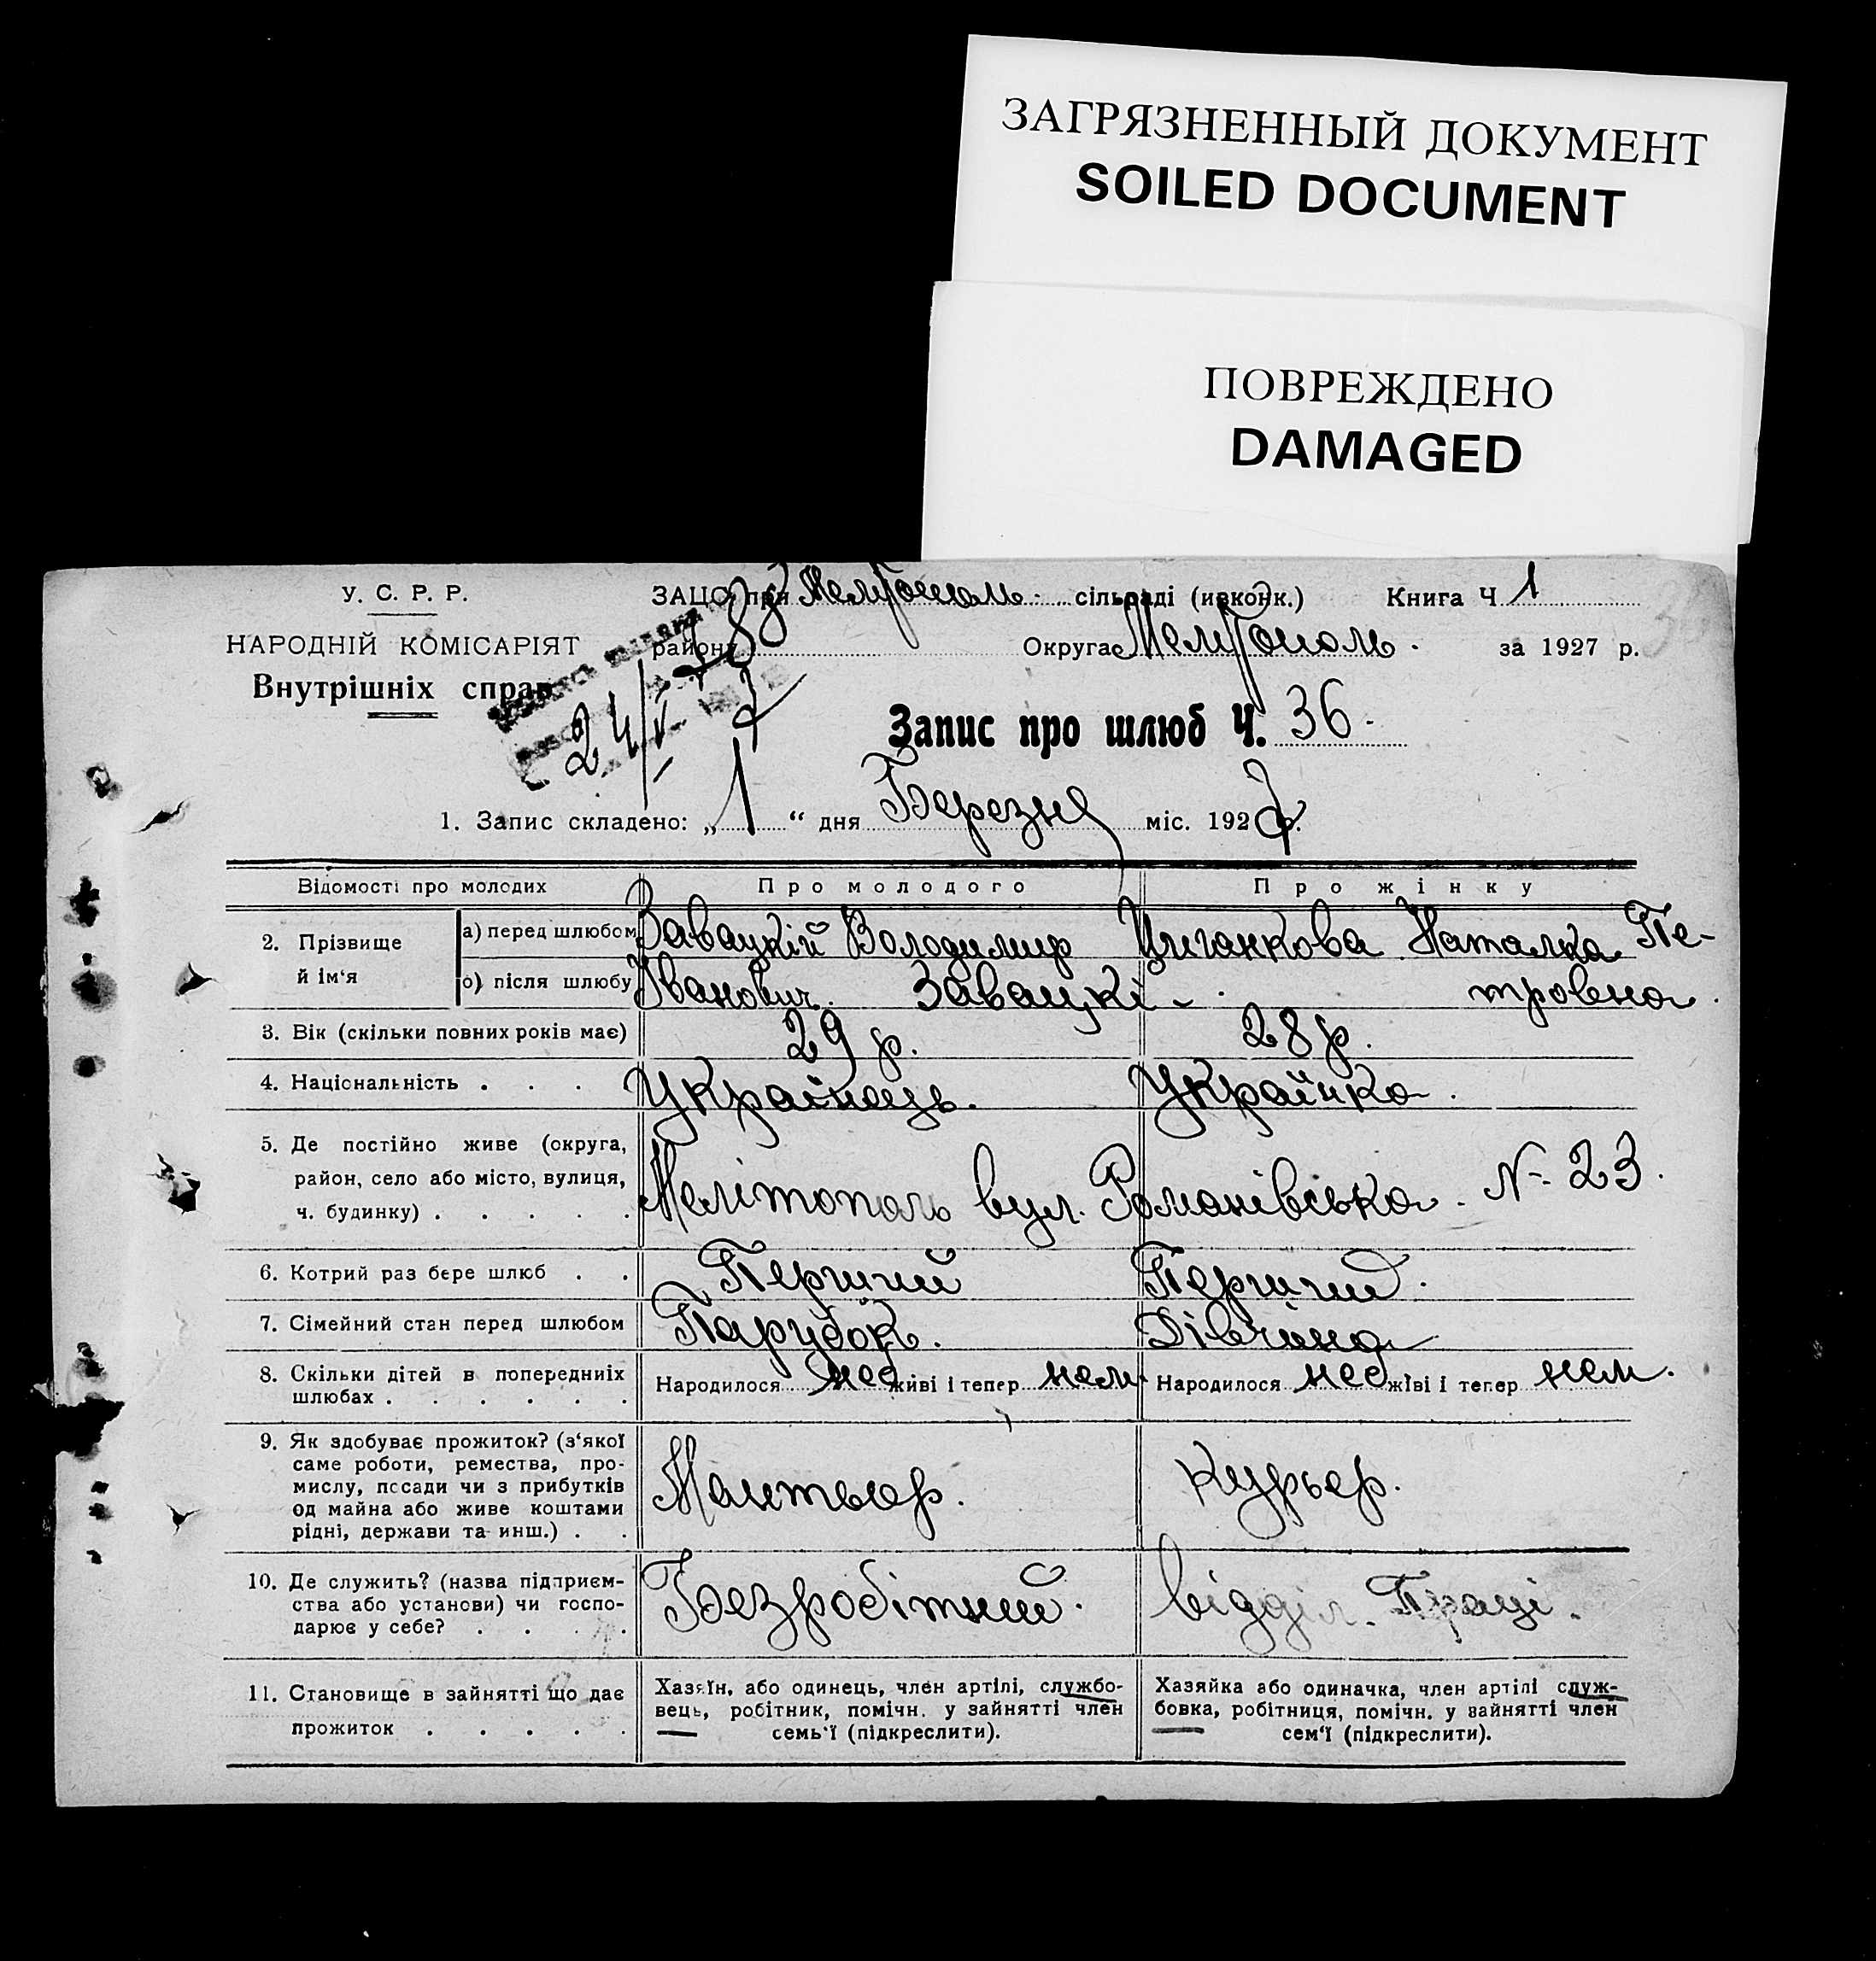 ЗАГРЯЗНЕННЫЙ ДОКУМЕНТ
SOILED DOCUMENT
ПОВРЕЖДЕНО
DAMAGED
У. С. Р. Р.
НАРОДНІЙ КОМІСАРІЯТ
Внутрішніх справ
ЗАЦС при сільраді (ивконк.) Книга Ч 1
району Округа за 1927 р.
24/V
Запис про шлюб Ч. 36.
1. Запис складено: „ 1 “ дня Березня міс. 1927 р.
Відомості про молодих Про молодого Про жінку
2. Прізвище й ім‘я
а) перед шлюбом Завацкій Володимир Циганкова Наталка Пе-
о) після шлюбу Іванович. Завацкі - тровна.
3. Вік (скільки повних років має) 29 р. 28 р.
4. Національність . . . Українець. Українка.
5. Де постійно живе (округа,
район, село або місто, вулиця,
ч. будинку) . . . . . Мелітополь вул. Романівська. № 23.
6. Котрий раз бере шлюб . . Перший Перший.
7. Сімейний стан перед шлюбом Парубок. Дівчина
8. Скільки дітей в попередниіх
шлюбах . . . . . . Народилося нее живі і тепер нем. Народилося нее живі і тепер нем.
9. Як здобуває прожиток? (з‘якої
саме роботи, ремества, про-
мислу, посади чи з прибутків
од майна або живе коштами
рідні, держави та инш.) . . Мантьор. Курьер.
10. Де служить? (назва підприєм-
ства або установи) чи госпо-
дарює у себе? . . . . Безробітний. Відділ. Праці.
11. Становище в зайнятті що дає
прожиток . . . . .
Хазяїн, або одинець, член артілі, службо-
вець, робітник, помічн. у зайнятті член
семь‘ї (підкреслити).
Хазяйка або одиначка, член артілі служ-
бовка, робітниця, помічн. у зайнятті член
сем‘ї (підкреслити).